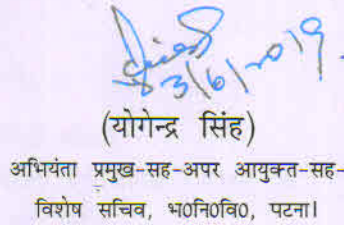 3/6/2019
(योगेन्द्र सिंह)
अभियंता प्रमुख-सह-अपर आयुक्त-सह-
विशेष सचिव, भ0नि0वि0, पटना।